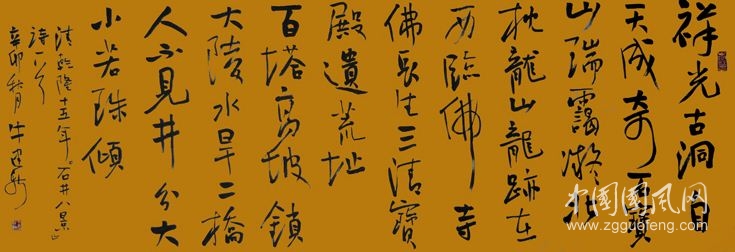 祥光古洞自
天成奇石寶
山瑞靄凝北
枕龍山龍跡在
西臨佛寺
佛長生三清寶
殿遺荒址
百塔高坡鎖
大陵水旱二橋
人不見井分大
小若珠傾
清乾隆十五年。石井八景
詩一首
辛卯秋月牛
中國國風网
www.zgguofeng.com